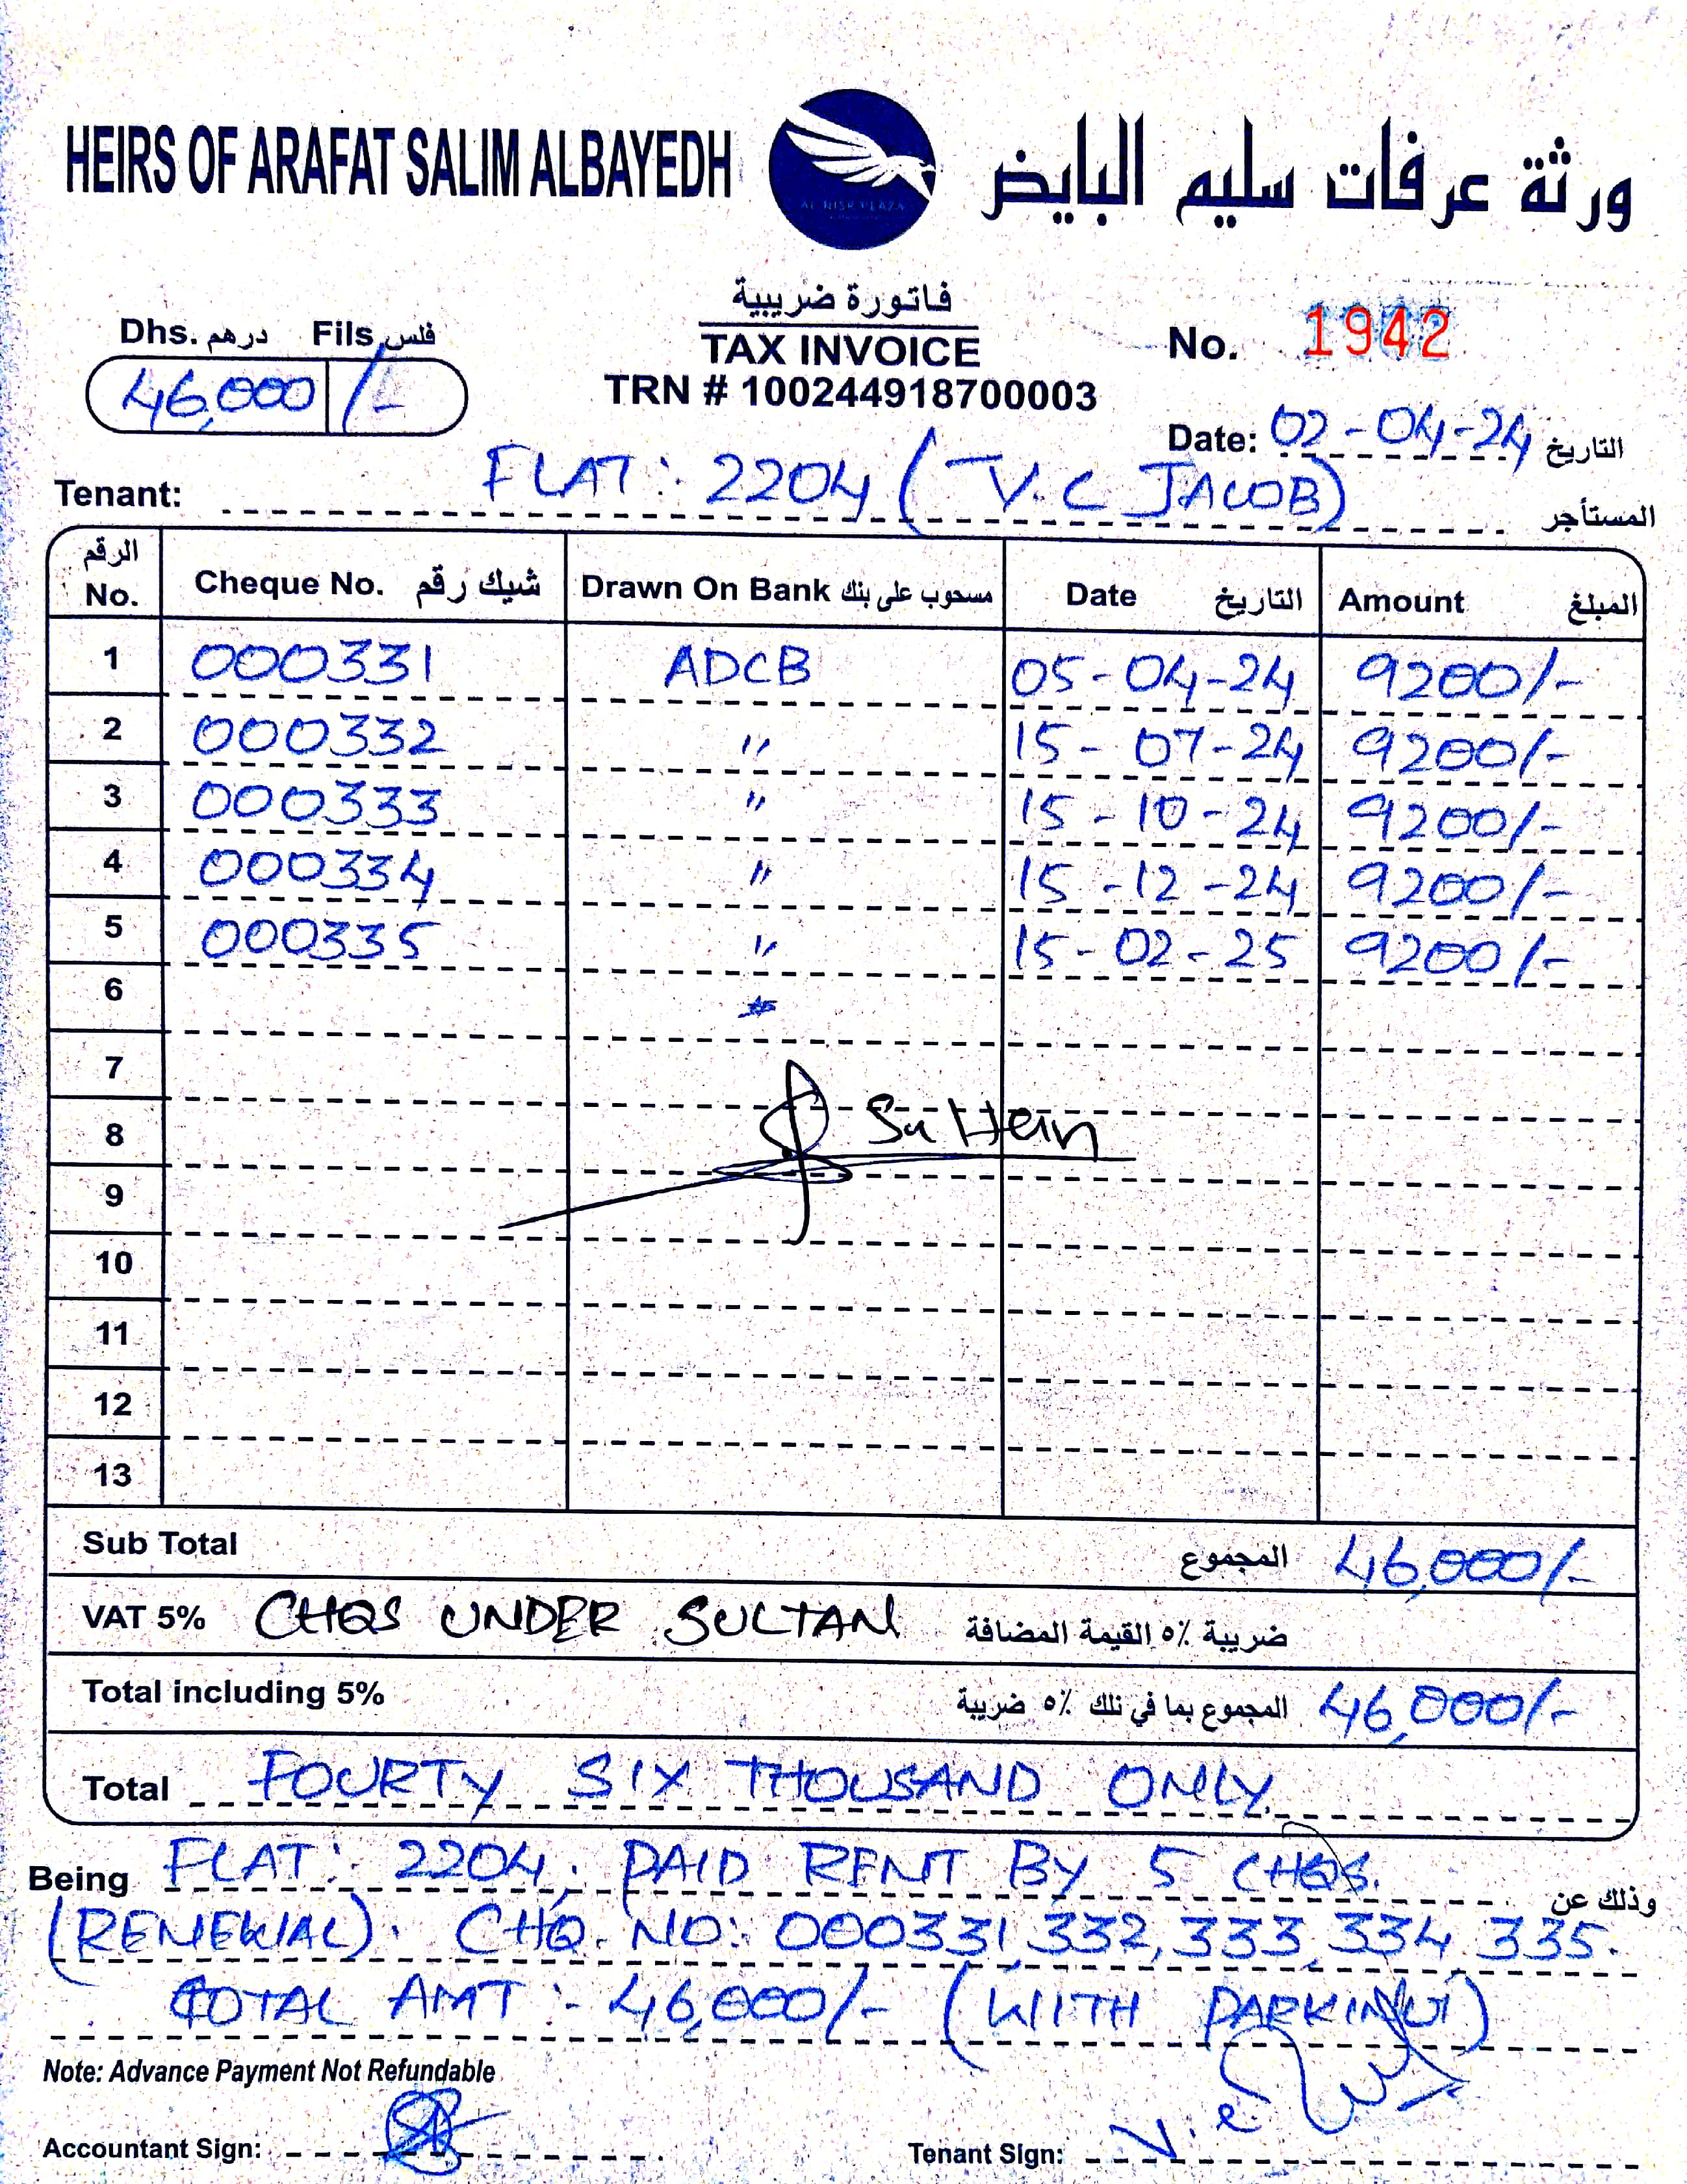 HEIRS OF ARAFAT SALIM ALBAYEDH
AL NISR PLAZA
ورثة عرفات سليم البايض
فاتورة ضريبية
TAX INVOICE
TRN # 100244918700003
Dhs. درهم Fils فلس
46,000 /-
No. 1942
Date: 02-04-24 التاريخ
Tenant: FLAT: 2204 (T.V.C JACOB) المستأجر
الرقم No. Cheque No. شيك رقم Drawn On Bank مسحوب على بنك Date التاريخ Amount المبلغ
1 000331 ADCB 05-04-24 9200/-
2 000332 " 15-07-24 9200/-
3 000333 " 15-10-24 9200/-
4 000334 " 15-12-24 9200/-
5 000335 " 15-02-25 9200/-
6
7
8
9
10
11
12
13
Sub Total المجموع 46,000/-
VAT 5% CHQS UNDER SULTAN ضريبة ٥٪ القيمة المضافة
Total including 5% المجموع بما في تلك ٥٪ ضريبة 46,000/-
Total FOURTY SIX THOUSAND ONLY.
Being FLAT: 2204. PAID RENT BY 5 CHQS. وذلك عن
(RENEWAL). CHQ. NO: 000331, 332, 333, 334, 335.
TOTAL AMT :- 46,000/- (WITH PARKING)
Note: Advance Payment Not Refundable
Accountant Sign:
Tenant Sign: